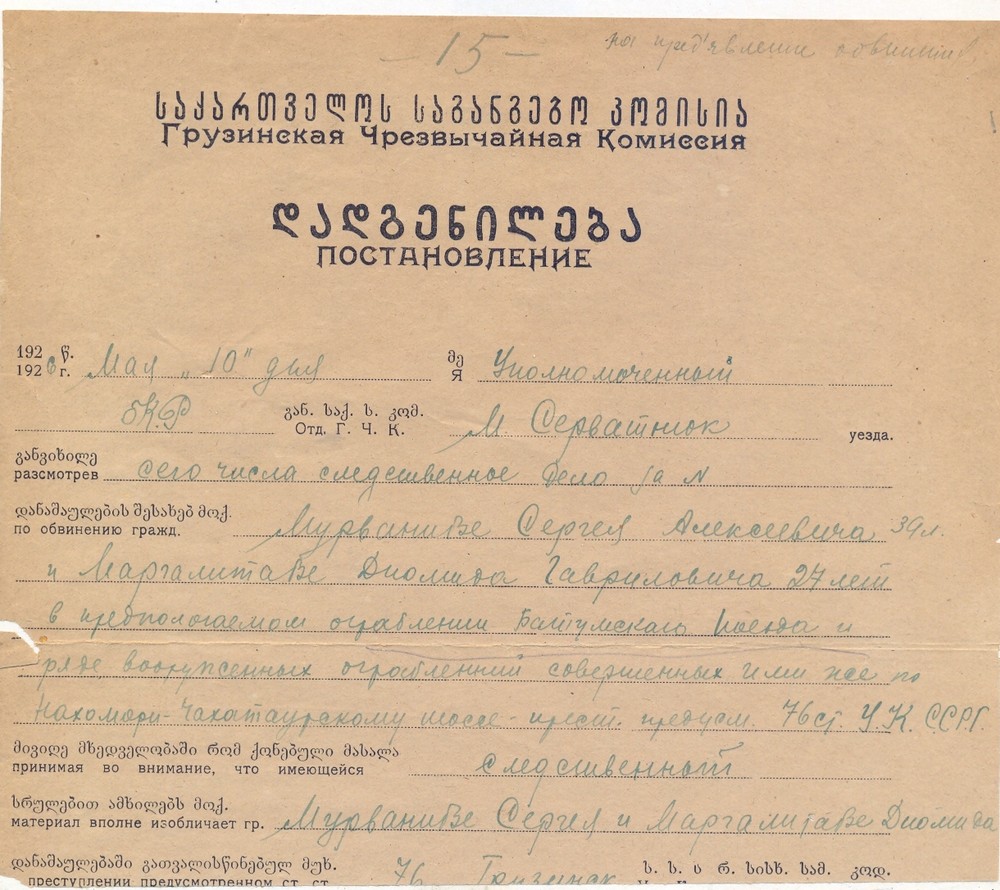 — 15 — на пред'явление обвинения
საქართველოს საგანგებო კომისია
Грузинская Чрезвычайная Комиссия
დადგენილება
ПОСТАНОВЛЕНИЕ
192 წ. მე
1926 г. Мая "10" дня Я Уполномоченный
БКР გან. საქ. ს. კომ.
Отд. Г. Ч. К. М. Серватнюк уезда.
განვიხილე
разсмотрев сего числа следственное дело за N
დანაშაულების შესახებ მოქ.
по обвинению гражд. Мурванидзе Сергея Алексеевича 39 л.
и Маргалитадзе Диомида Гавриловича 27 лет
в предпологаемом ограблении Батумского поезда и
ряде вооруженных ограблений совершенных ими же по
-Чахатаурскому шоссе - прест. предусм. 76 ст. У.К. ССРГ.
მივიღე მხედველობაში რომ ქონებული მასალა
принимая во внимание, что имеющейся следственный
სრულებით ამხილებს მოქ.
материал вполне изобличает гр. Мурванидзе Сергея и Маргалитадзе Диомида
დანაშაულებაში გათვალისწინებულ მუხ. ს. ს. ს რ. სისხ. სამ. კოდ.
преступлении предусмотренном ст. ст. 76 Грузинск